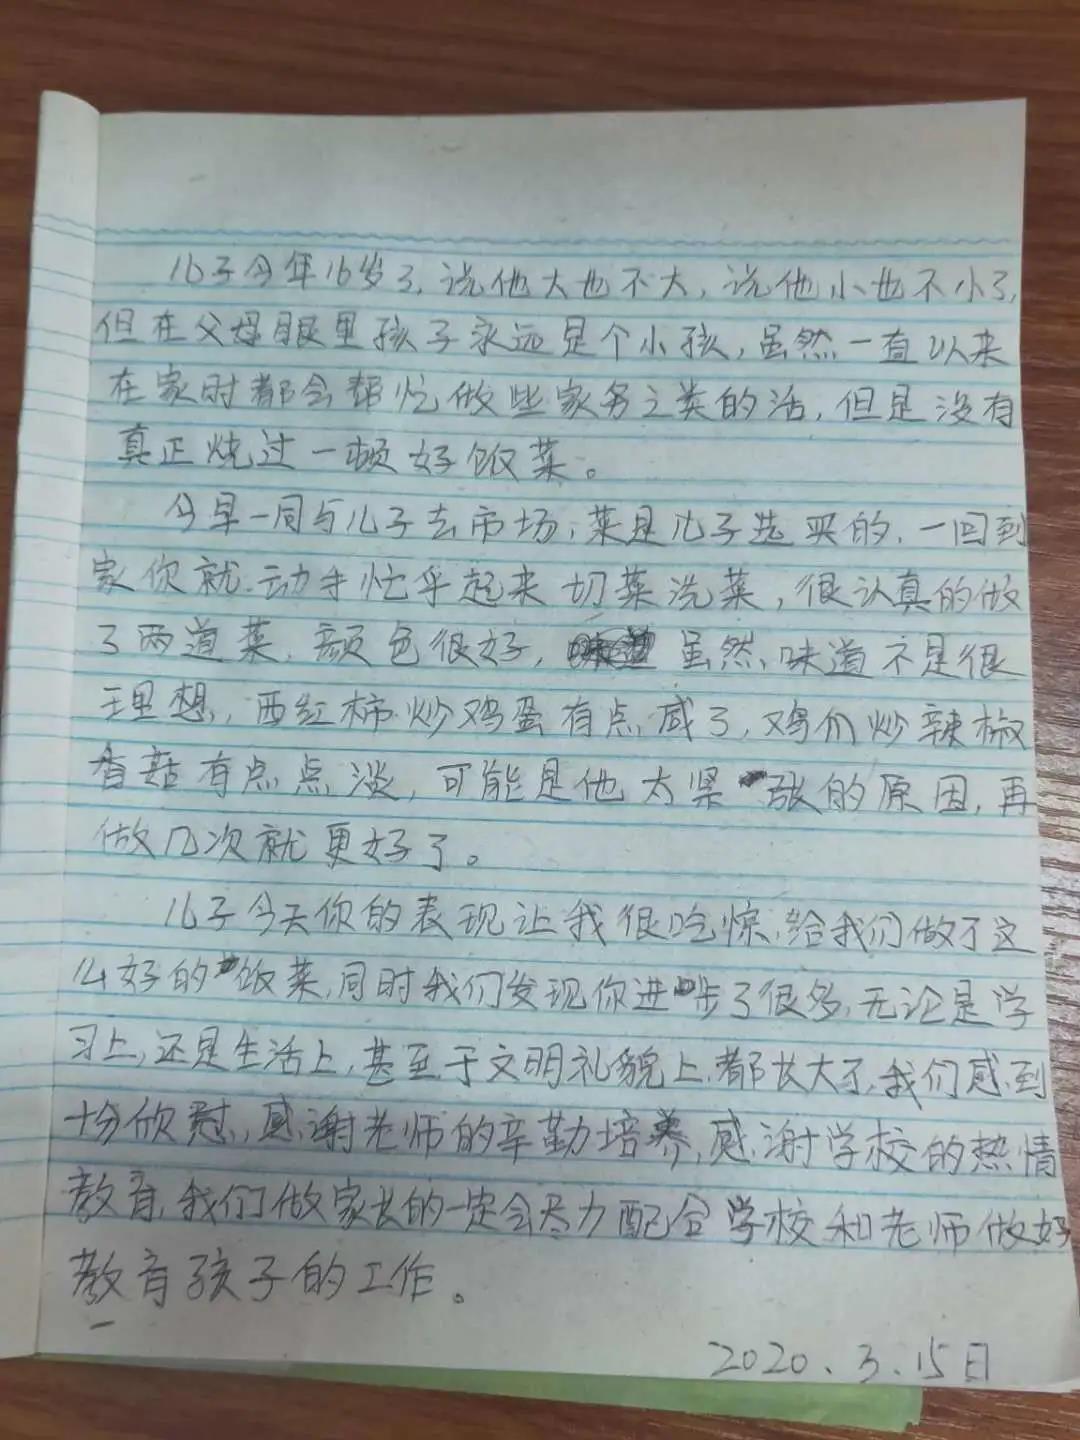 儿子今年16岁了,说他大也不大,说他小也不小了,
但在父母眼里孩子永远是个小孩,虽然一直以来
在家时都会帮忙做些家务之类的活,但是没有
真正烧过一顿好饭菜。
今早一同与儿子去市场,菜是儿子选买的,一回到
家你就动手忙乎起来切菜洗菜,很认真的做
了两道菜,颜色很好,虽然味道不是很
理想,西红柿炒鸡蛋有点咸了,鸡们炒辣椒
香菇有点点淡,可能是他太紧张的原因,再
做几次就更好了。
儿子今天你的表现让我很吃惊,给我们做了这
么好的饭菜,同时我们发现你进步了很多,无论是学
习上,还是生活上,甚至于文明礼貌上,都长大了,我们感到
十分欣慰,感谢老师的辛勤培养,感谢学校的热情
教育,我们做家长的一定会尽力配合学校和老师做好
教育孩子的工作。
2020.3.15日